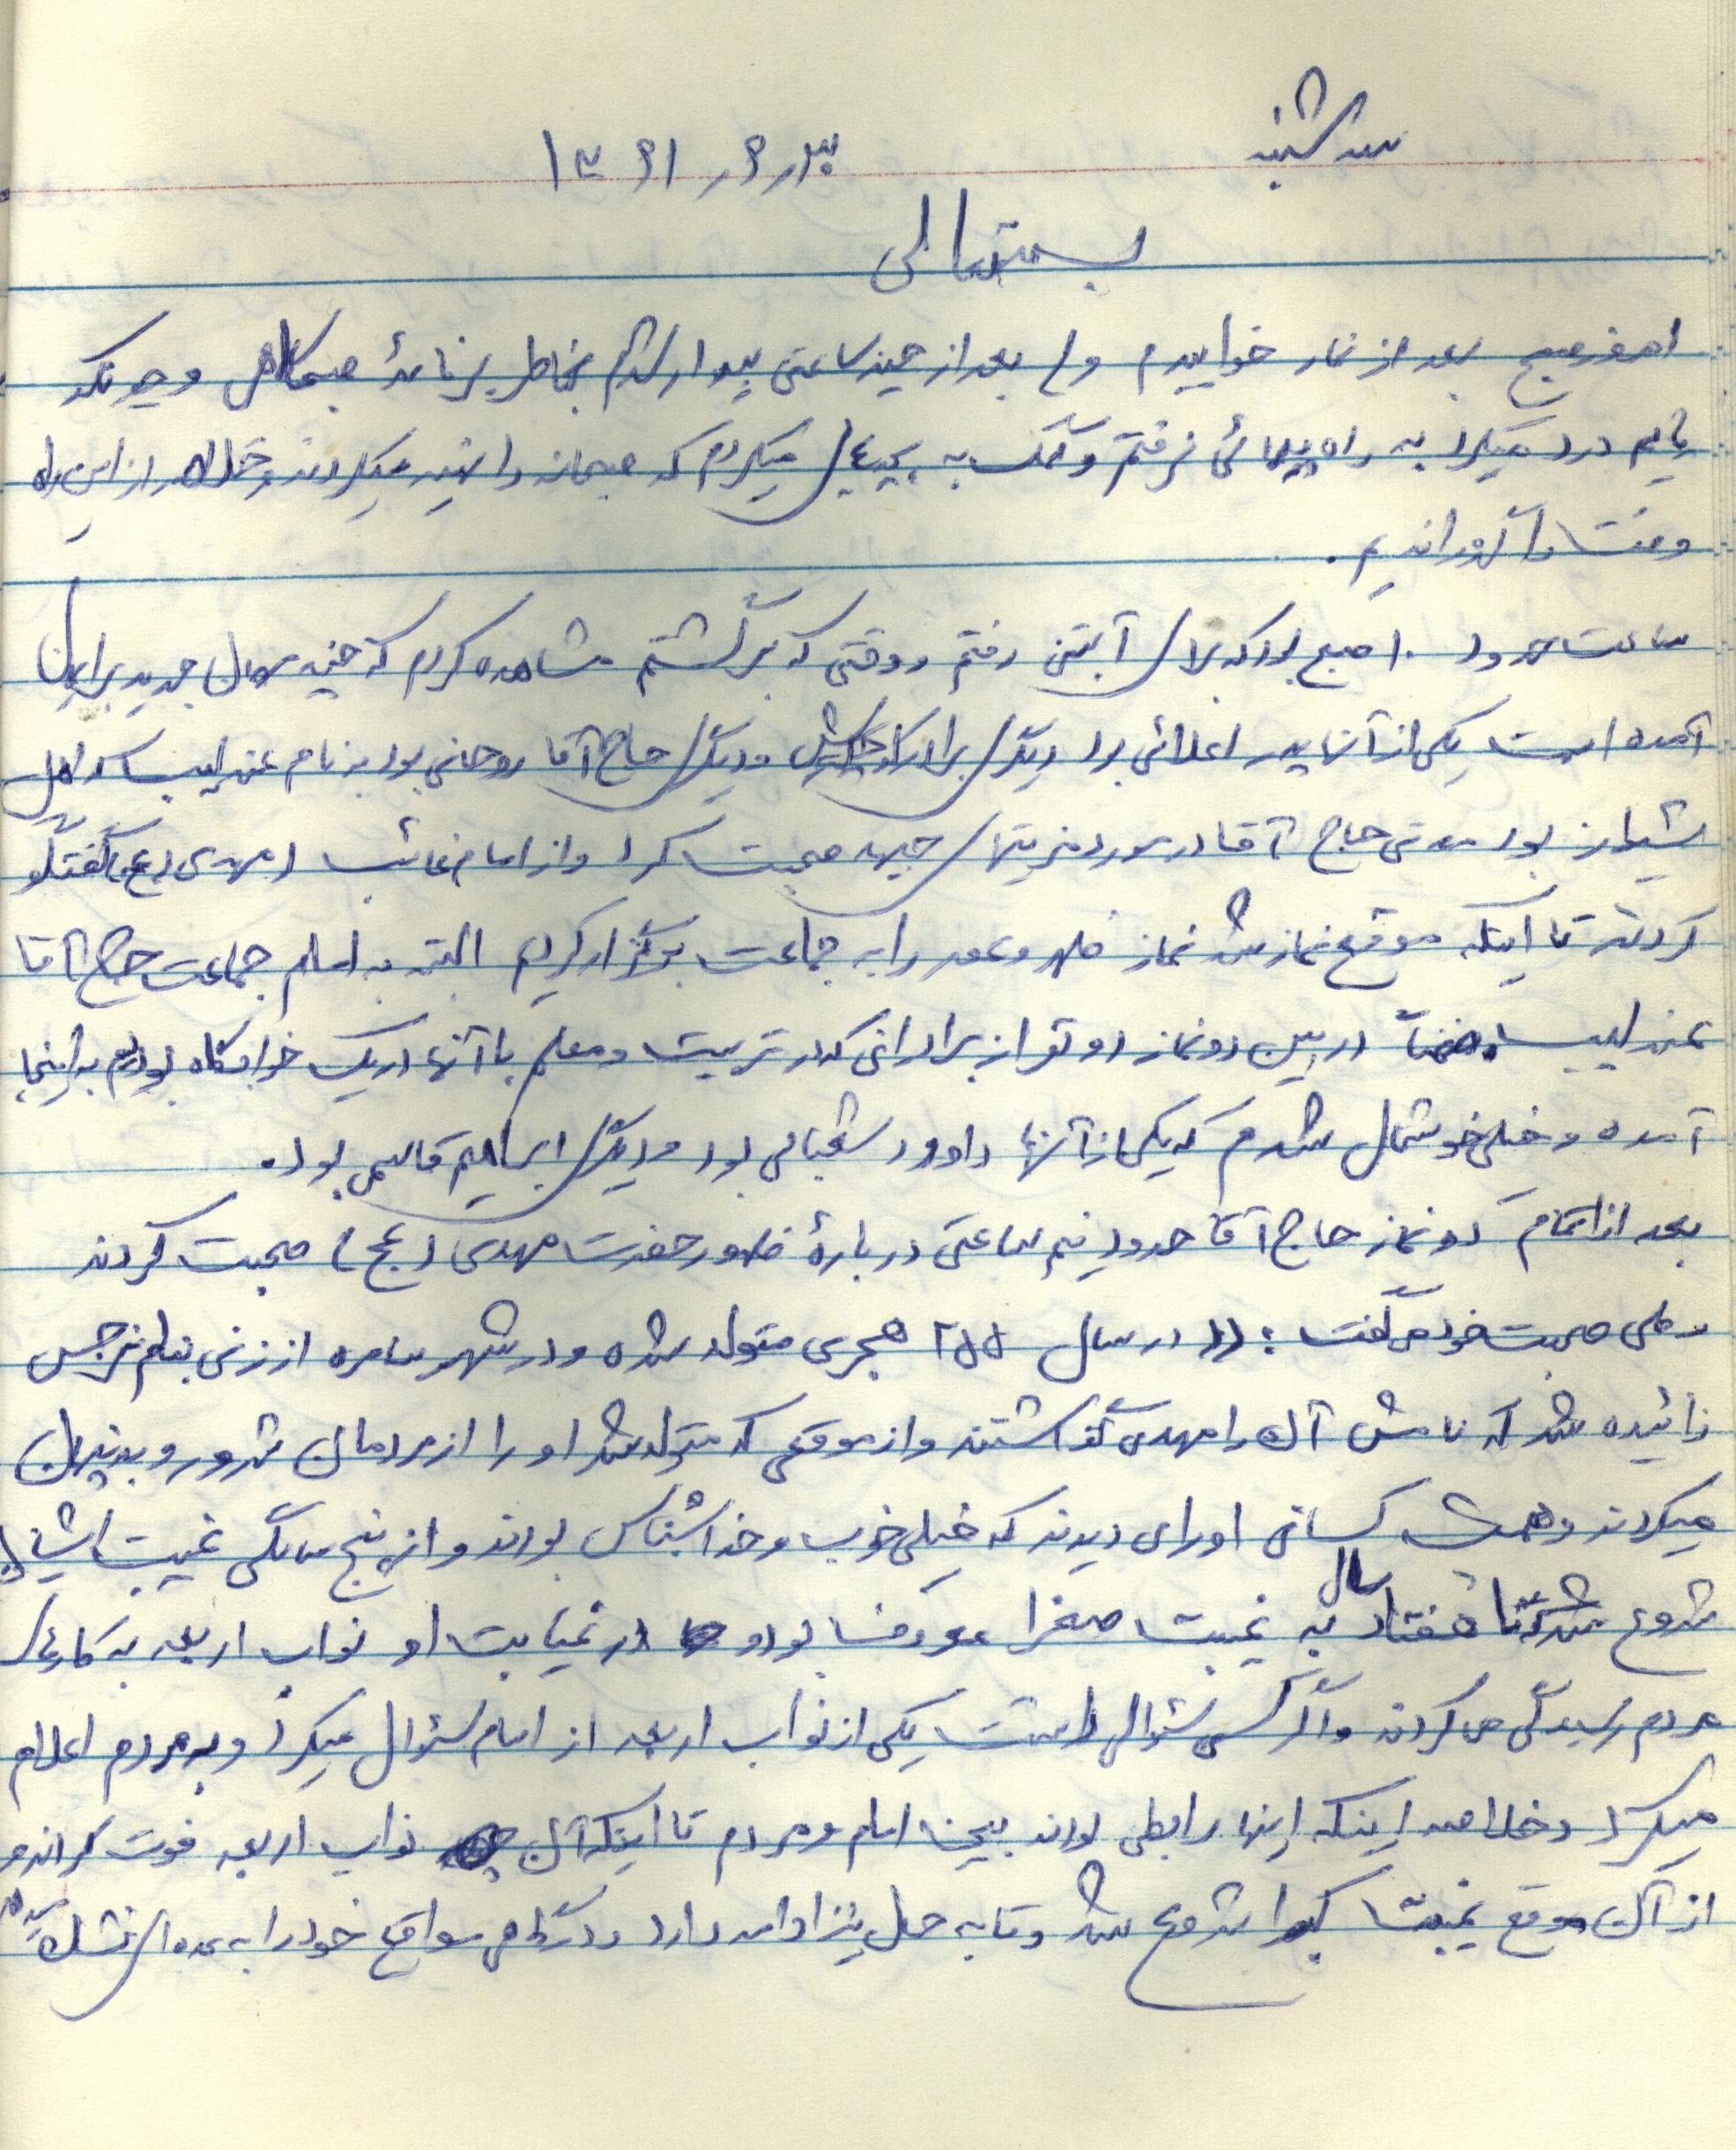 سه شنبه
۱۳۶۱
بسمتعالی
امروز صبح بعد از نماز خوابیدم ولی بعد از چند ساعتی بیدار شدم بخاطر برنامهٔ صبحگاهی و چونکه
پایم درد میکرد به راه پیمائی نرفتم و کمک به بچه‌های میکردم که صبحانه را تهیه میکردند و خلاصه از این راه
وقت را گذراندیم.
ساعت حدود ۱۰ صبح بود که برای آبتنی رفتم و وقتی که برگشتم مشاهده کردم که چند مهمان جدید برایمان
آمده است یکی از آنها پدر اعلائی بود دیگری برادر کوچکش و دیگری حاج آقا روحانی بود به نام عندلیب که اهل
شیراز بود مدتی حاج آقا در مورد مزیتهای جبهه صحبت کرد و از امام غائب (مهدی (عج) گفتگو
کردند تا اینکه موقع نماز شد نماز ظهر و عصر را به جماعت برگزار کردیم البته به امام جماعت حاج آقا
عندلیب ضمناً در بین دو نماز دو نفر از برادرانی که در تربیت معلم با آنها در یک خوابگاه بودیم به اینجا
آمده و خیلی خوشحال شدم که یکی از آنها داوود شعبانی بود و دیگری ابراهیم قاسمی بود.
بعد از اتمام دو نماز حاج آقا حدود نیم ساعتی دربارهٔ ظهور حضرت مهدی (عج) صحبت کردند
و طی صحبت خود می گفت: (( در سال ۲۵۵ هجری متولد شده و در شهر سامره از زنی بنام نرجس
زائیده شد که نامش آن را مهدی گذاشتند و از موقعی که متولد شد او را از مردمان شرور و بد پنهان
میکردند و همش کسانی او را می دیدند که خیلی خوب و خداشناس بودند و از پنج سالگی غیبت ایشان
شروع شد که تا هفتاد سال به غیبت صغرا معروف بود و در غیابت او نواب اربعه به کارهای
مردم رسیدگی می کردند و اگر کسی سئوالی داشت یکی از نواب اربعه از امام سئوال میکرد و به مردم اعلام
میکرد و خلاصه اینکه اینها رابطی بودند بین امام و مردم تا اینکه آن نواب اربعه فوت کردند و
از آن موقع غیبت کبرا شروع شد و تا به حال نیز ادامه دارد و در گاهی مواقع خود را به عده‌ای نشان